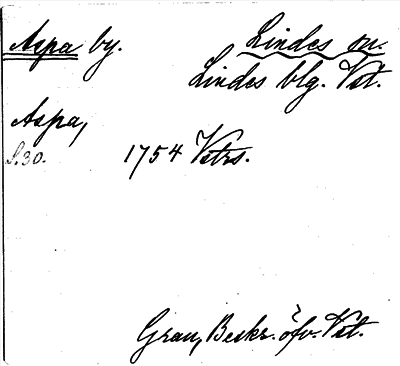 Aspa by.
Lindes sn.
Lindes blg. Vst.
Aspa,
S. 30.
1754 Vstrs.
Grau, Beskr. öfv. Vst.